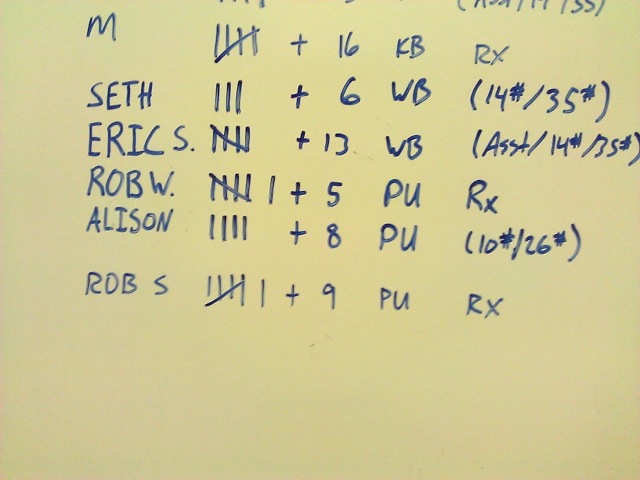 M 𝍸 + 16 KB RX
SETH ||| + 6 WB (14#/35#)
ERIC S. 𝍸 + 13 WB (Asst/14#/35#)
ROB W. 𝍸 | + 5 PU Rx
ALISON |||| + 8 PU (10#/26#)
ROB S 𝍸 | + 9 PU RX